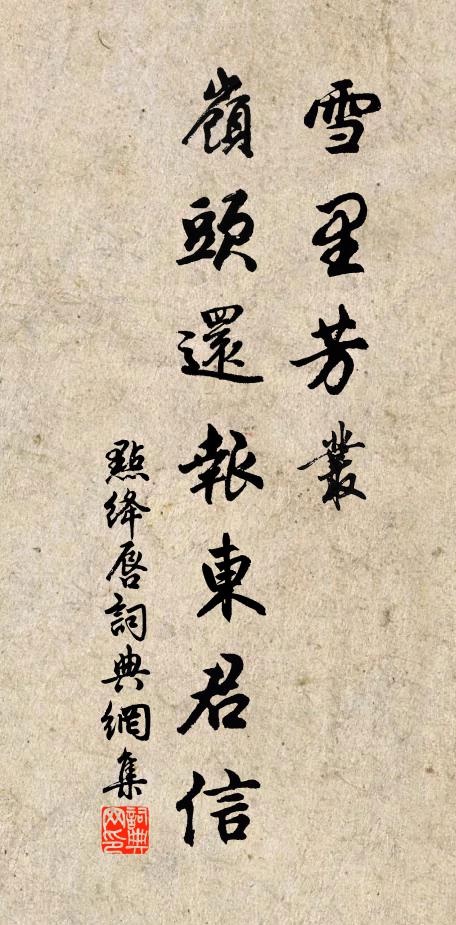 雪里芳叢
嶺頭還報東君信
點絳唇詞典網集
詞典網印